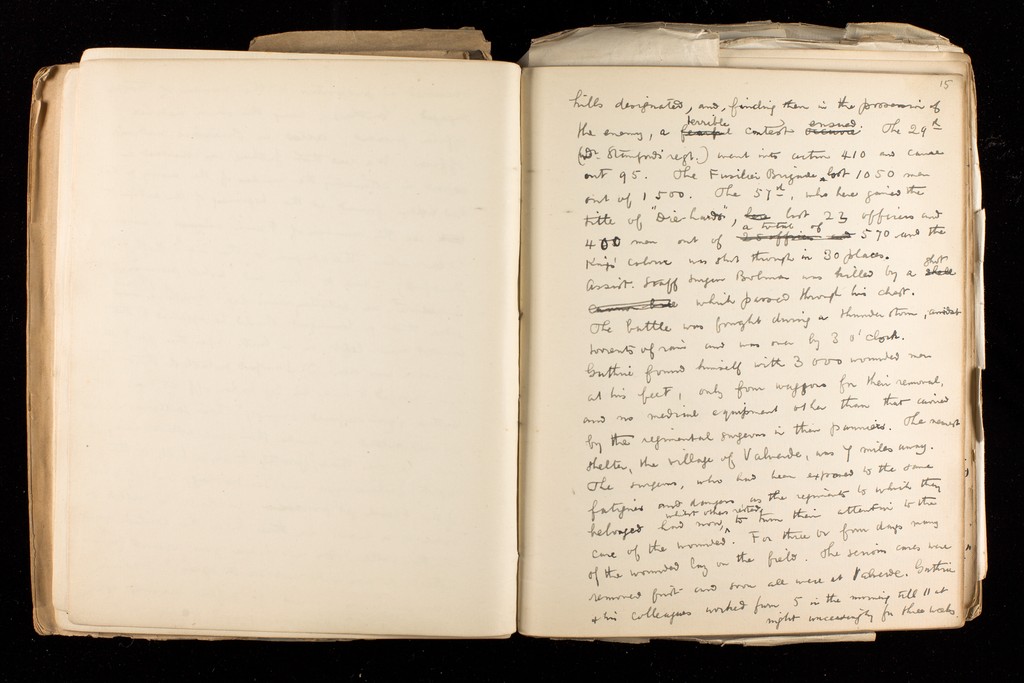 15
hills designated, and, finding them in the possession of
the enemy, a terrible contest ensued. The 29th
(Dr. Stanford's regt.) went into action 410 and came
out 95. The Fusilier Brigade lost 1050 men
out of 1500. The 57th, who here gained the
title of "Die-hards", lost 23 officers and
400 men out of a total of 570 and the
King's colour was shot through in 30 places.
Assist. Staff Surgeon Bolman was killed by a shot
which passed through his chest.
The battle was fought during a thunderstorm, amidst
torrents of rain and was over by 3 o'clock.
Guthrie found himself with 3000 wounded men
at his feet, only four waggons for their removal,
and no medical equipment other than that carried
by the regimental surgeons in their panniers. The nearest
shelter, the village of Valverde, was 7 miles away.
The surgeons, who had been exposed to the same
fatigues and dangers as the regiments to which they
belonged had now, whilst others rested, to turn their attention to the
care of the wounded. For three or four days many
of the wounded lay on the field. The serious cases were
removed first and soon all were at Valverde. Guthrie
& his colleagues worked from 5 in the morning till 11 at
night unceasingly for three weeks